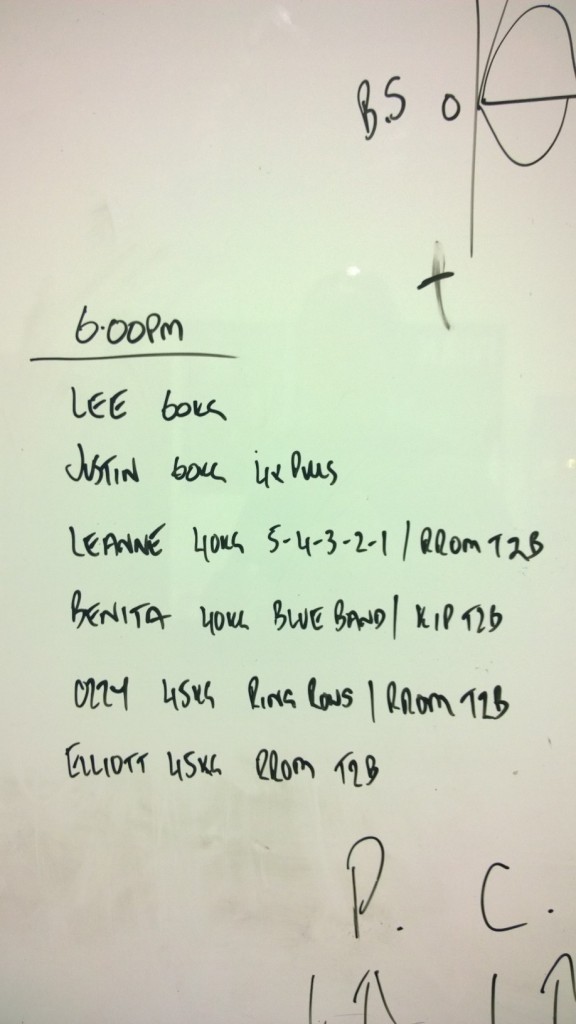 B.S 0
6.00PM
LEE 60KG
JUSTIN 60KG 4x PULLS
LEANNE 40KG 5-4-3-2-1 / RROM T2B
BENITA 40KG BLUE BAND / KIP T2B
OZZY 45KG RING ROWS / RROM T2B
ELLIOTT 45KG RROM T2B
P. C.